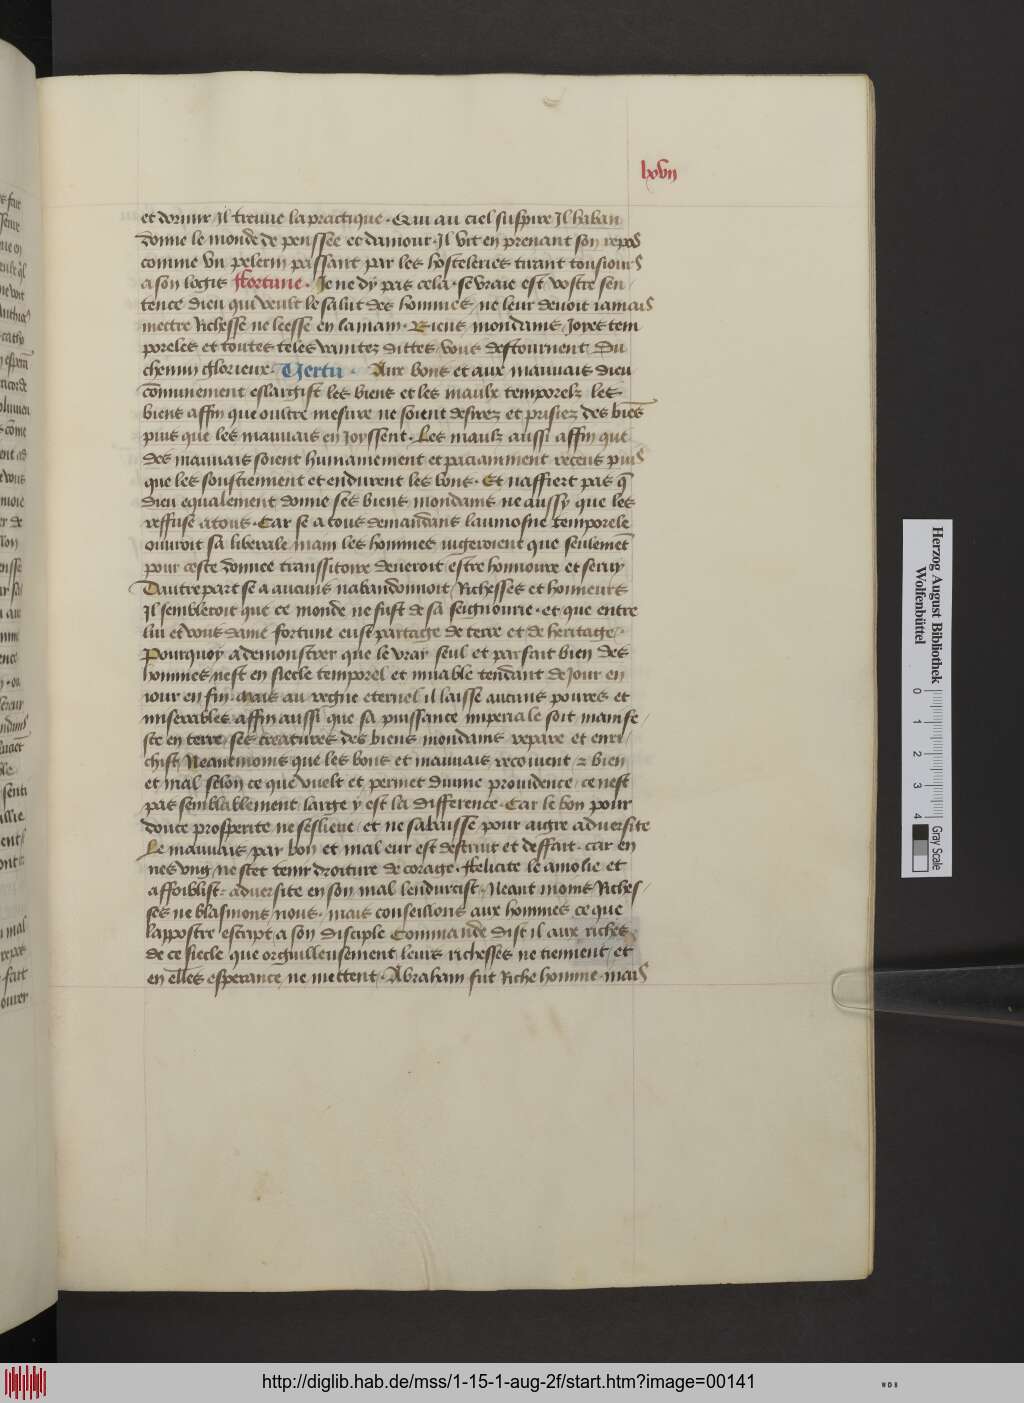 lxvij
et dormir / Il treuue la practique · Qui au ciel suspire Il haban
donne le monde de penssee et damour · Il vit en prenant son repos
comme vn pelerin passant par les hosteleries tirant tousiours
a son logis Ffortune · Je ne dy pas cela · se vraie est vostre sen
tence dieu qui veult le salut des hommes / ne leur deuoit iamais
mectre Richesse ne leesse en la main · Biens mondains / Joyes tem
poreles et toutes teles vanitez dittes / vous destournent Du
chemin glorieux · Vertu · Aux bons et aux mauuais dieu
cōmunement eslargist les biens et les maulx temporelz les
biens affin que oultre mesure ne soient desirez et prisiez des biēs
puis que les mauuais en Joyssent · Les maulz aussi affin que
des mauuais soient humainement et paciamment receus puis
que les soustiennent et endurent les bons · Et naffiert pas q̄
dieu equalement donne ses biens mondains ne aussy que les
reffuse a tous · Car se a tous demandans laumosne temporele
ouuroit sa liberale main les hommes iugeroient que seulemēt
pour ceste donnee transsitoire deueroit estre honnoure et seruy
Dautre part se a aucuns nabandonnoit / Richesses et honneurs
Il sembleroit que ce monde ne fust de sa seignourie · et que entre
lui et vous dame fortune eust partage de terre et de heritage ·
Pourquoy a demonstrer que le vray seul et parfait bien des
hommes / nest en siecle temporel et muable tendant de Jour en
iour en fin mais au regne eternel il laisse aucuns poures et
miserables affin aussi que sa puissance imperiale soit manife /
ste en terre / ses creatures des biens mondains repare et enri /
chist Neantmoins que les bons et mauuais recoiuent / ⁊ bien
et mal selon ce que vuelt et permet diuine prouidence / ce nest
pas semblablement large y est la difference · Car le bon pour
doulce prosperite ne sesliene / et ne sabaisse pour aigre aduersite
Le mauuais / par bon et mal eur est destruit et deffait · car en
nes vng / ne scet tenir droiture de corage · Ffelicite le amolie et
affoiblist · aduersite en son mal lendurcist · Neant moins Riches /
ses ne blasmons nous · mais conseillons aux hommes ce que
lappostre escript a son disciple Commande dist il aux riches
de ce siecle que orguilleusement leurs richesses ne tiennent / et
en elles esperance / ne mettent · Abraham fut Riche homme · mais
Herzog August Bibliothek
Wolfenbüttel
0 1 2 3 4
Gray Scale
http://diglib.hab.de/mss/1-15-1-aug-2f/start.htm?image=00141
WDB